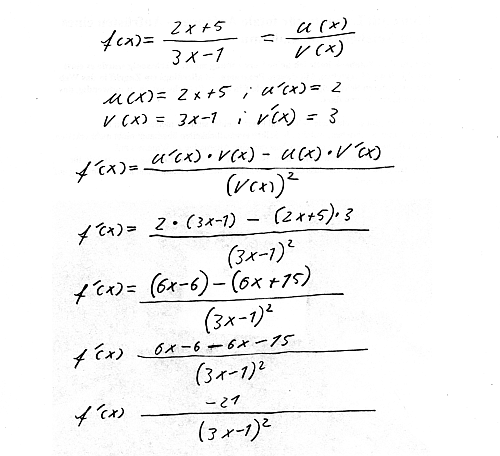 f(x) = (2x+5)/(3x-1) = u(x)/v(x)
u(x) = 2x+5 ; u'(x) = 2
v(x) = 3x-1 ; v'(x) = 3
f'(x) = (u'(x)·v(x) - u(x)·v'(x))/(v(x))²
f'(x) = (2·(3x-1) - (2x+5)·3)/(3x-1)²
f'(x) = ((6x-6) - (6x+15))/(3x-1)²
f'(x) (6x-6-6x-15)/(3x-1)²
f'(x) -21/(3x-1)²